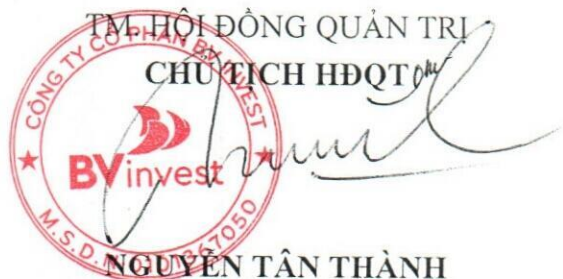 TM. HỘI ĐỒNG QUẢN TRỊ
CHỦ TỊCH HĐQT
CÔNG TY CỔ PHẦN BV INVEST
BVinvest
M.S.D.N:
NGUYỄN TÂN THÀNH